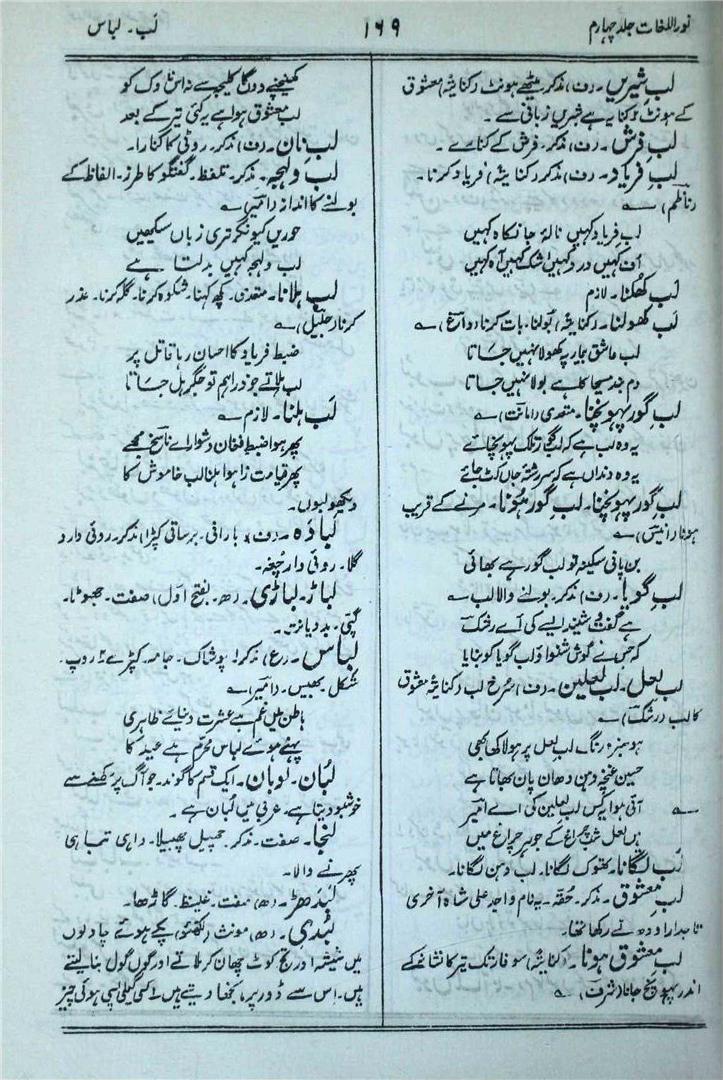 نور اللغات جلد چہارم
۱۶۹
لب۔ لباس
لبِ شیریں۔ (ف) مذکر۔ میٹھے ہونٹ (کنایۃً) معشوق
کے ہونٹ (کنایہ ہے شیریں زبانی سے۔
لبِ فرش۔ (ف) مذکر۔ فرش کے کنارے۔
لبِ فریاد۔ (ف) مذکر (کنایۃً) فریاد کرنا۔
(ناظم) ؎
لبِ فریاد کہیں نالۂ جانکاہ کہیں
اُف کہیں درد کہیں اشک کہیں آہ کہیں
لب کھُلنا۔ لازم
لب کھولنا۔ (کنایۃً) بولنا۔ بات کرنا (داغ) ؎
لب عاشق بیمار پہ کھولا نہیں جاتا
دم بند مسیحا کا ہے بولا نہیں جاتا
لبِ گور پہونچنا۔ متعدی (امانت) ؎
یہ وہ لب ہے کہ لبِ گور تلک پہونچاتے
یہ وہ دنداں ہے کہ سررشتۂ جاں کٹ جائے
لبِ گور پہونچنا۔ لبِ گور ہونا۔ مرنے کے قریب
ہونا (انیس) ؎
بن پانی سکینہ تو لبِ گور ہے بھائی
لبِ گویا۔ (ف) مذکر۔ بولنے والا لب ؎
ہے گفت و شنید ایسے کی اے رشک
کہ جس نے گوشِ شنوا و لبِ گویا کو بنایا
لبِ لعل۔ لبِ لعلین۔ (ف) سُرخ لب (کنایۃً) معشوق
کا لب (رشک) ؎
ہو سبزہ رنگ لبِ لعل پر ہو لاکھی بھی
حسین غنچہ دہن دھان پان بھاتا ہے
آتی ہوا پر اس لبِ لعلین کی اے امیر ؎
ہیں لعل شب چراغ کے جوہر چراغ میں
لب لگانا۔ تھوک لگانا۔ لب دہن لگانا۔
لبِ معشوق۔ مذکر۔ حُقّہ۔ یہ نام واجد علی شاہ آخری
تاجدار اودھ نے رکھا تھا۔
لبِ معشوق ہونا۔ (کنایۃً) سوفار تک تیر کا نشانے کے
اندر پہونچ جانا (شرف) ؎
کھینچنے دوں گا کلیجے سے نہ اس ناوک کو
لبِ معشوق ہوا ہے یہ کئی تیر کے بعد
لبِ نان۔ (ف) مذکر۔ روٹی کا کنارا۔
لب و لہجہ۔ مذکر۔ تلفظ۔ گفتگو کا طرز۔ الفاظ کے
بولنے کا انداز (امیر) ؎
حوریں کیونکر تری زباں سیکھیں
لب و لہجہ کہیں بدلتا ہے
لب ہلانا۔ متعدی۔ کچھ کہنا۔ شکوہ کرنا۔ گلہ کرنا۔ عذر
کرنا (جلیل) ؎
ضبطِ فریاد کا احسان رہا قاتل پر
لب ہلاتے جو ذرا ہم تو جگر ہل جاتا
لب ہلنا۔ لازم ؎
پھر ہوا ضبطِ فغان دشوار اے ناسخ مجھے
پھر قیامت زا ہوا ہلنا لبِ خاموش کا
دیکھو لبوں۔
لبادہ۔ (ف) بارانی۔ برساتی کپڑا) مذکر۔ روئی دار د
گلا۔ روئی دار چُغہ۔
لباڑ۔ لباڑی۔ (ھ۔ بفتح اول) صفت۔ جھوٹا۔
گپّی۔ بددیانت۔
لباس۔ (ع) مذکر! پوشاک۔ جامہ۔ کپڑے ۲ روپ۔
شکل۔ بھیس۔ (امیر) ؎
باطن میں غم ہے عشرت دنیائے ظاہری
پہنے ہوئے لباس محرّم ہے عید کا
لُبان۔ لوبان۔ ایک قسم کا گوند۔ جو آگ پر رکھنے سے
خوشبو دیتا ہے۔ عربی میں لُبان ہے۔
لبجا۔ صفت۔ مذکر۔ چھیل چھبیلا۔ واہی تباہی
پھرنے والا۔
لبدھڑ۔ (ھ) صفت۔ غلیظ۔ گاڑھا۔
لبدی۔ (ھ) مونث (لکھنؤ) پکے ہوئے چاولوں
میں شیشہ اور تج کوٹ چھان کر ملاتے اور گول گول بنا لیتے
ہیں۔ اس سے ڈور پر مانجھا دیتے ہیں ۲ کسی گیلی پسی ہوئی چیز